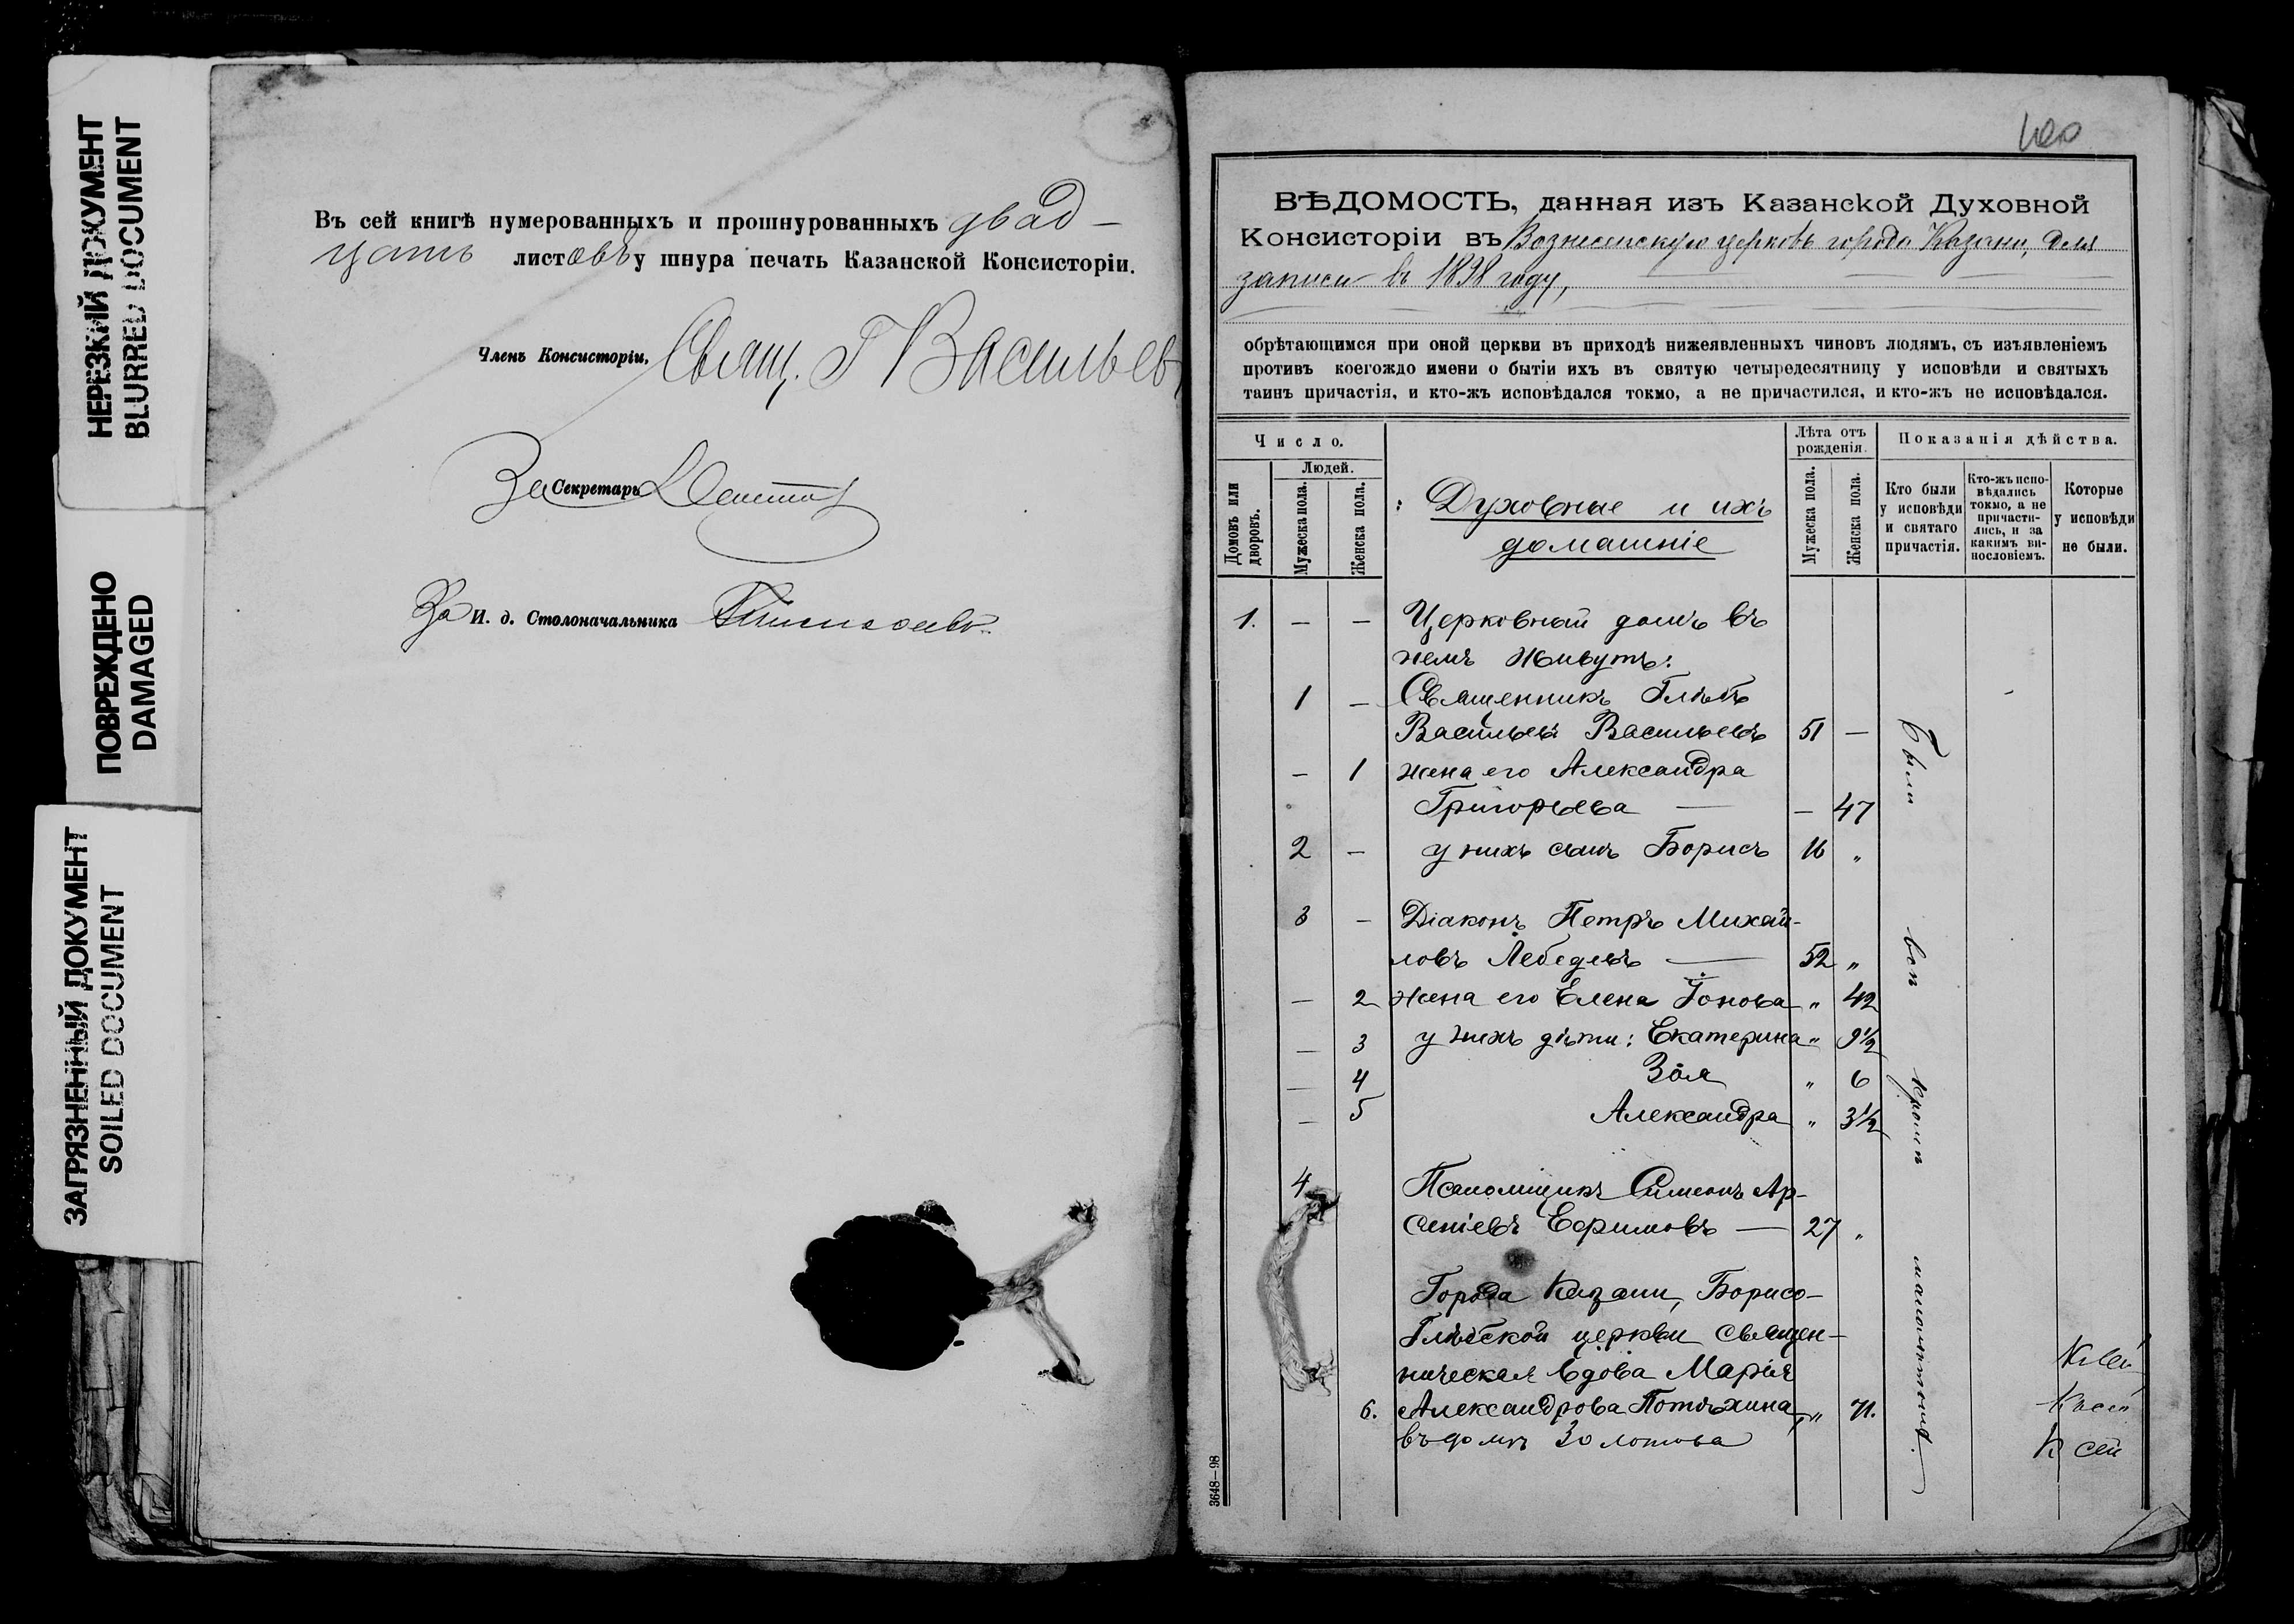 НЕРЕЗКИЙ ДОКУМЕНТ
BLURRED DOCUMENT
ПОВРЕЖДЕНО
DAMAGED
ЗАГРЯЗНЕННЫЙ ДОКУМЕНТ
SOILED DOCUMENT
Въ сей книгѣ нумерованныхъ и прошнурованныхъ двад-
цать листовъ у шнура печать Казанской Консисторіи.
Членъ Консисторіи, Свящ. Г Васильев
За Секретарь
За И. д. Столоначальника
ВѢДОМОСТЬ, данная изъ Казанской Духовной
Консисторіи въ Вознесенскую церковь города Казани, для
записи въ 1898 году,
обрѣтающимся при оной церкви въ приходѣ нижеявленныхъ чиновъ людямъ, съ изъявленіемъ
противъ коегождо имени о бытіи ихъ въ святую четыредесятницу у исповѣди и святыхъ
таинъ причастія, и кто-жъ исповѣдался токмо, а не причастился, и кто-жъ не исповѣдался.
Число.
Людей.
Домовъ или дворовъ.
Мужеска пола.
Женска пола.
Духовные и ихъ
домашніе
Лѣта отъ
рожденія.
Мужеска пола.
Женска пола.
Показанія дѣйства.
Кто были
у исповѣди
и святаго
причастія.
Кто-жъ испо-
вѣдались
токмо, а не
причасти-
лись, и за
какимъ ви-
нословіемъ.
Которые
у исповѣди
не были.
1. — — Церковный домъ въ
немъ живутъ:
1 — Священникъ Глѣбъ
Васильевъ Васильевъ 51 —
— 1 жена его Александра
Григорьева — — 47
2 — у нихъ сынъ Борисъ 16 „
3 — Діаконъ Петръ Михай-
ловъ Лебедевъ — 52 „
— 2 жена его Елена Іонова „ 42
— 3 у нихъ дѣти: Екатерина „ 9½
— 4 Зоя „ 6
— 5 Александра „ 3½
4 Псаломщикъ Симеонъ Ар-
сеніевъ Ефимовъ — 27 „
Города Казани, Борисо-
Глѣбской церкви священ-
ническая вдова Марія
6. Александрова Потѣхина „ 71.
въ домѣ Золотова
Были вси кромѣ малолѣтнихъ.
К сей
3648—98